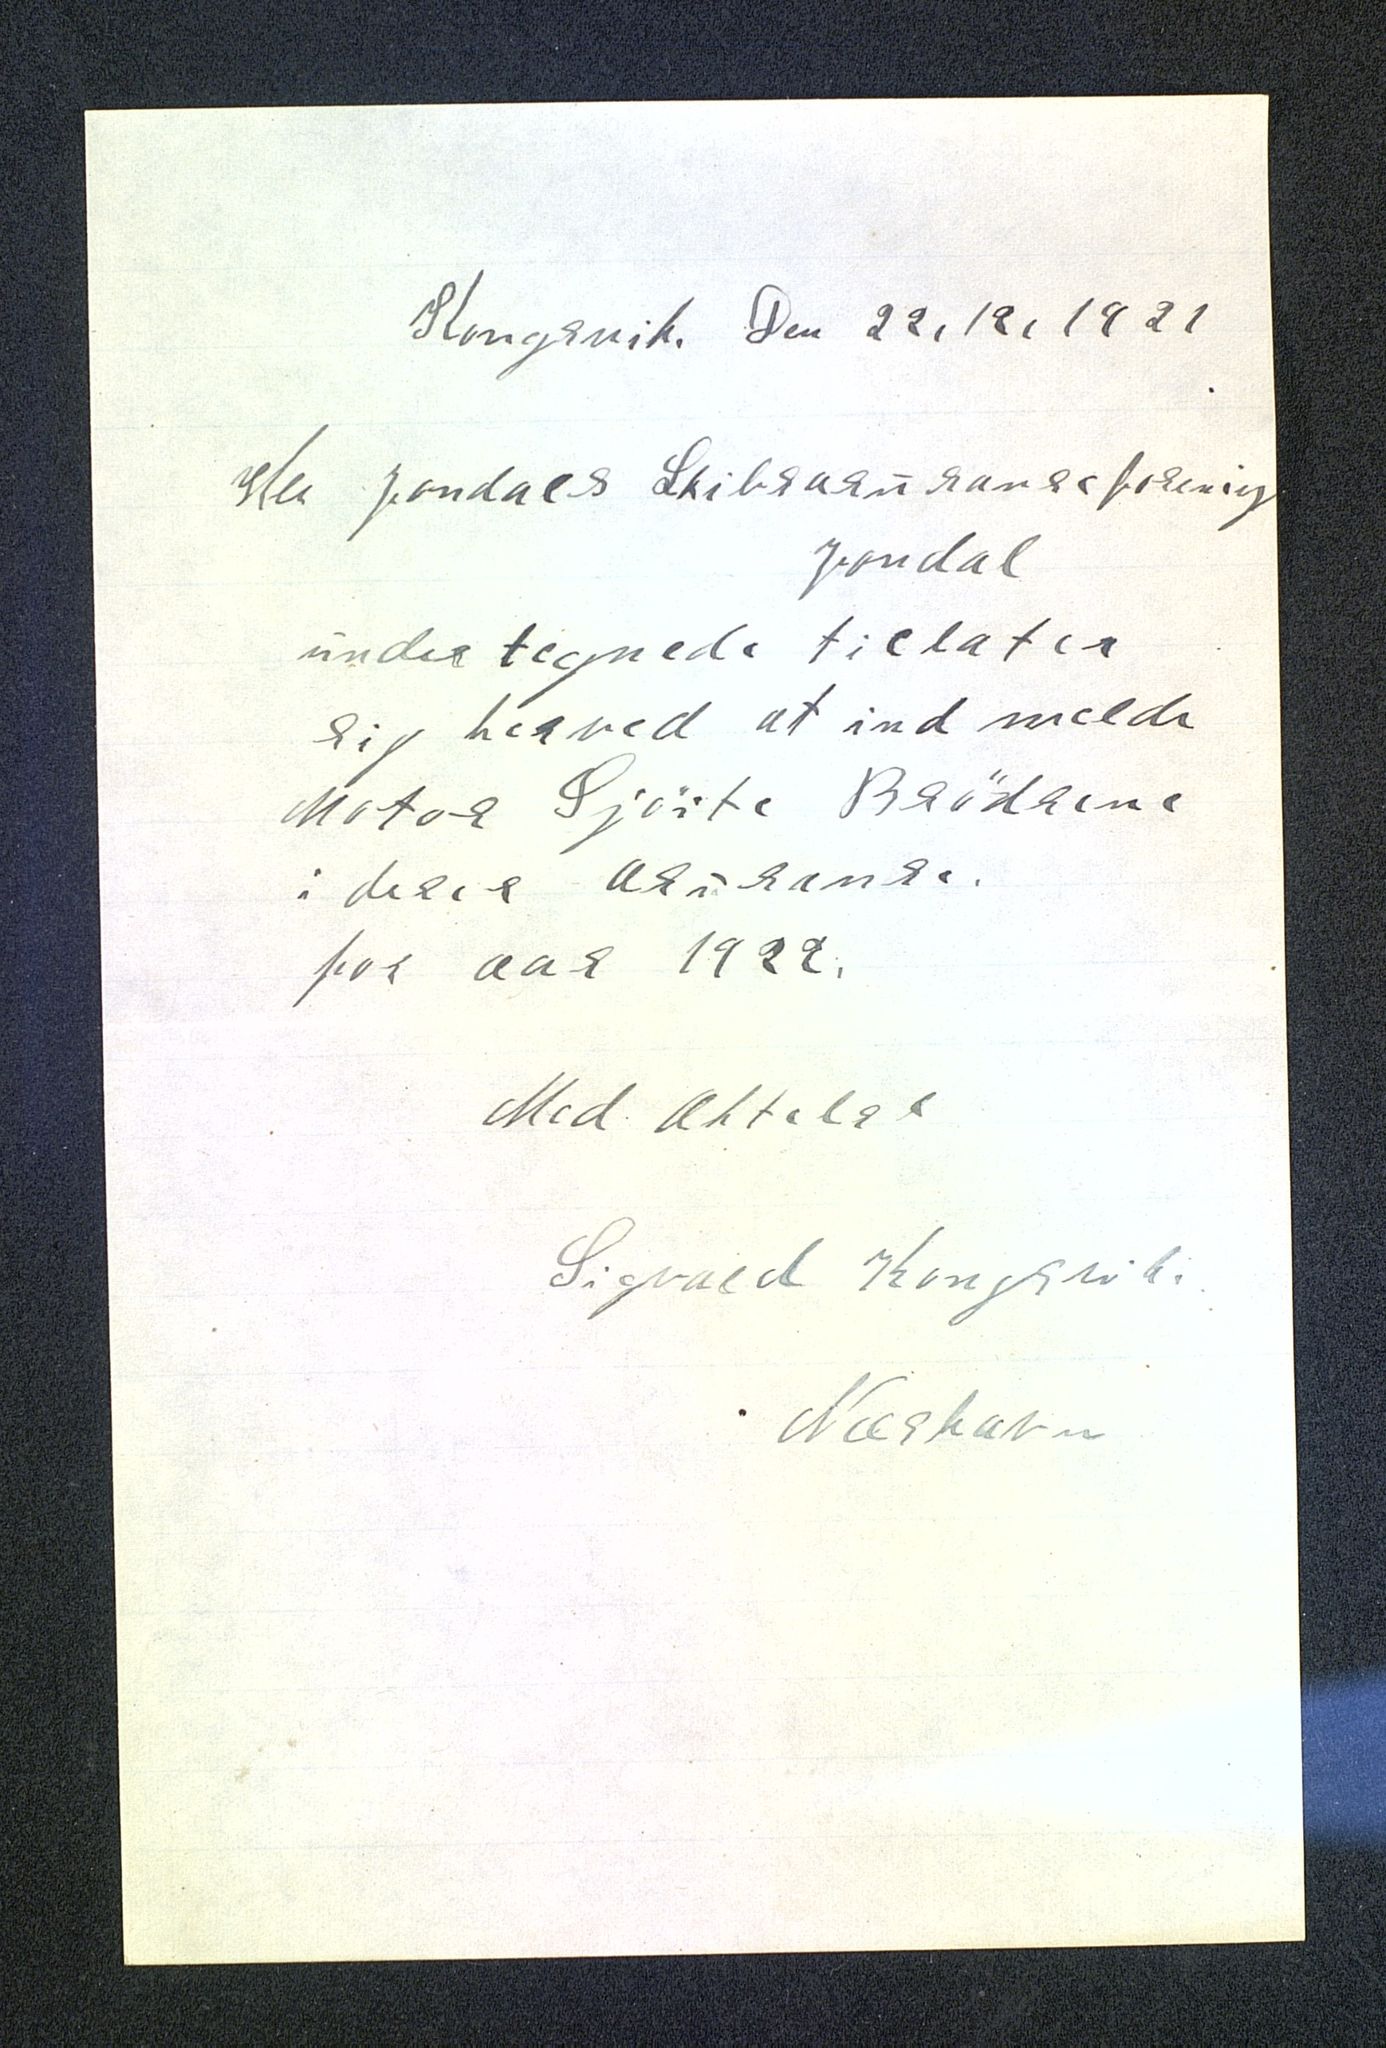 Kongsvik. Den 22.12.1921
Her Jondals Skibsasüranseforening
Jondal
ündertegnede tillater
sig herved at ind melde
Motor Sjöite Brödrene
i deres Asüranse.
for aar 1922.
Med Aktelse
Sigvald Kongsvik.
Næshavn